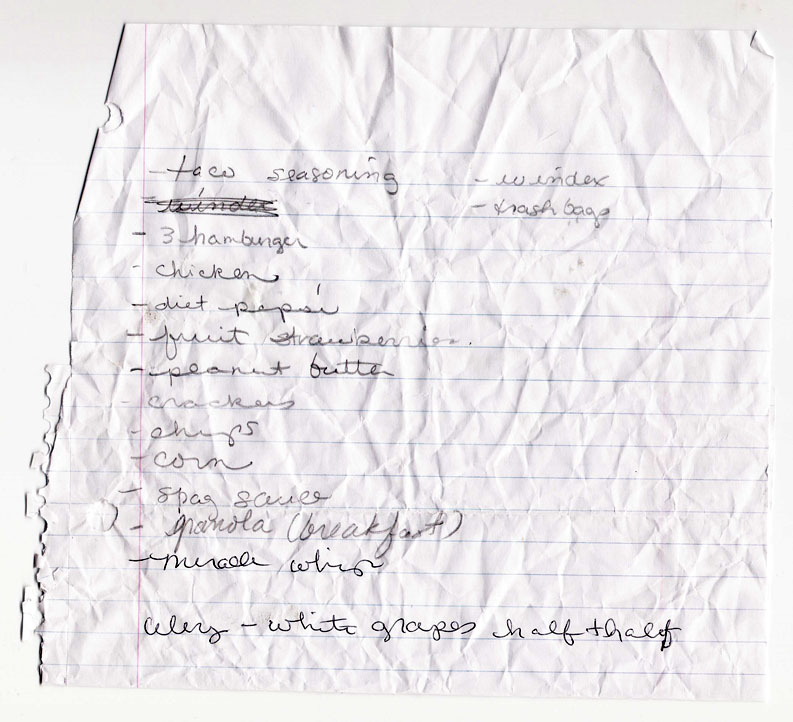 - taco seasoning
- windex
- 3 hamburger
- chicken
- diet pepsi
- fruit strawberries.
- peanut butter
- crackers
- chips
- corn
- spag sauce
- granola (breakfast)
- miracle whip
- windex
- trash bags
celery - white grapes half + half